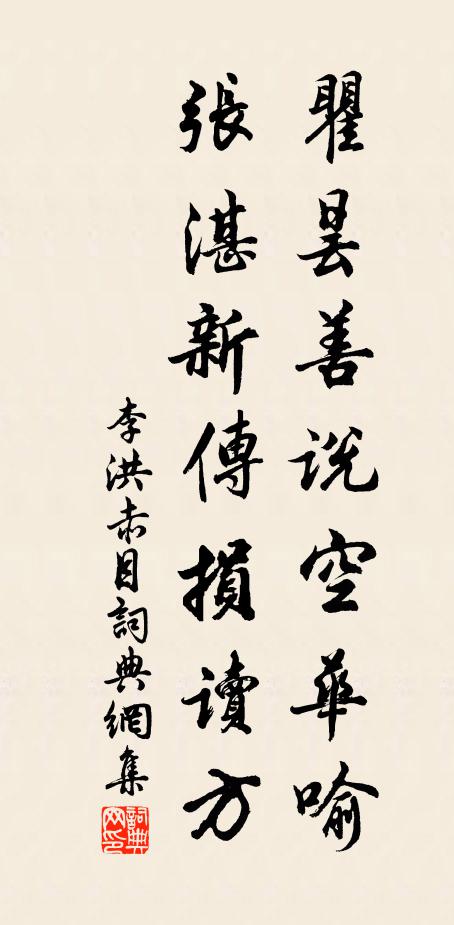 瞿曇善説空華喻
張湛新傳損讀方
李洪赤目詞典網集
詞典网印